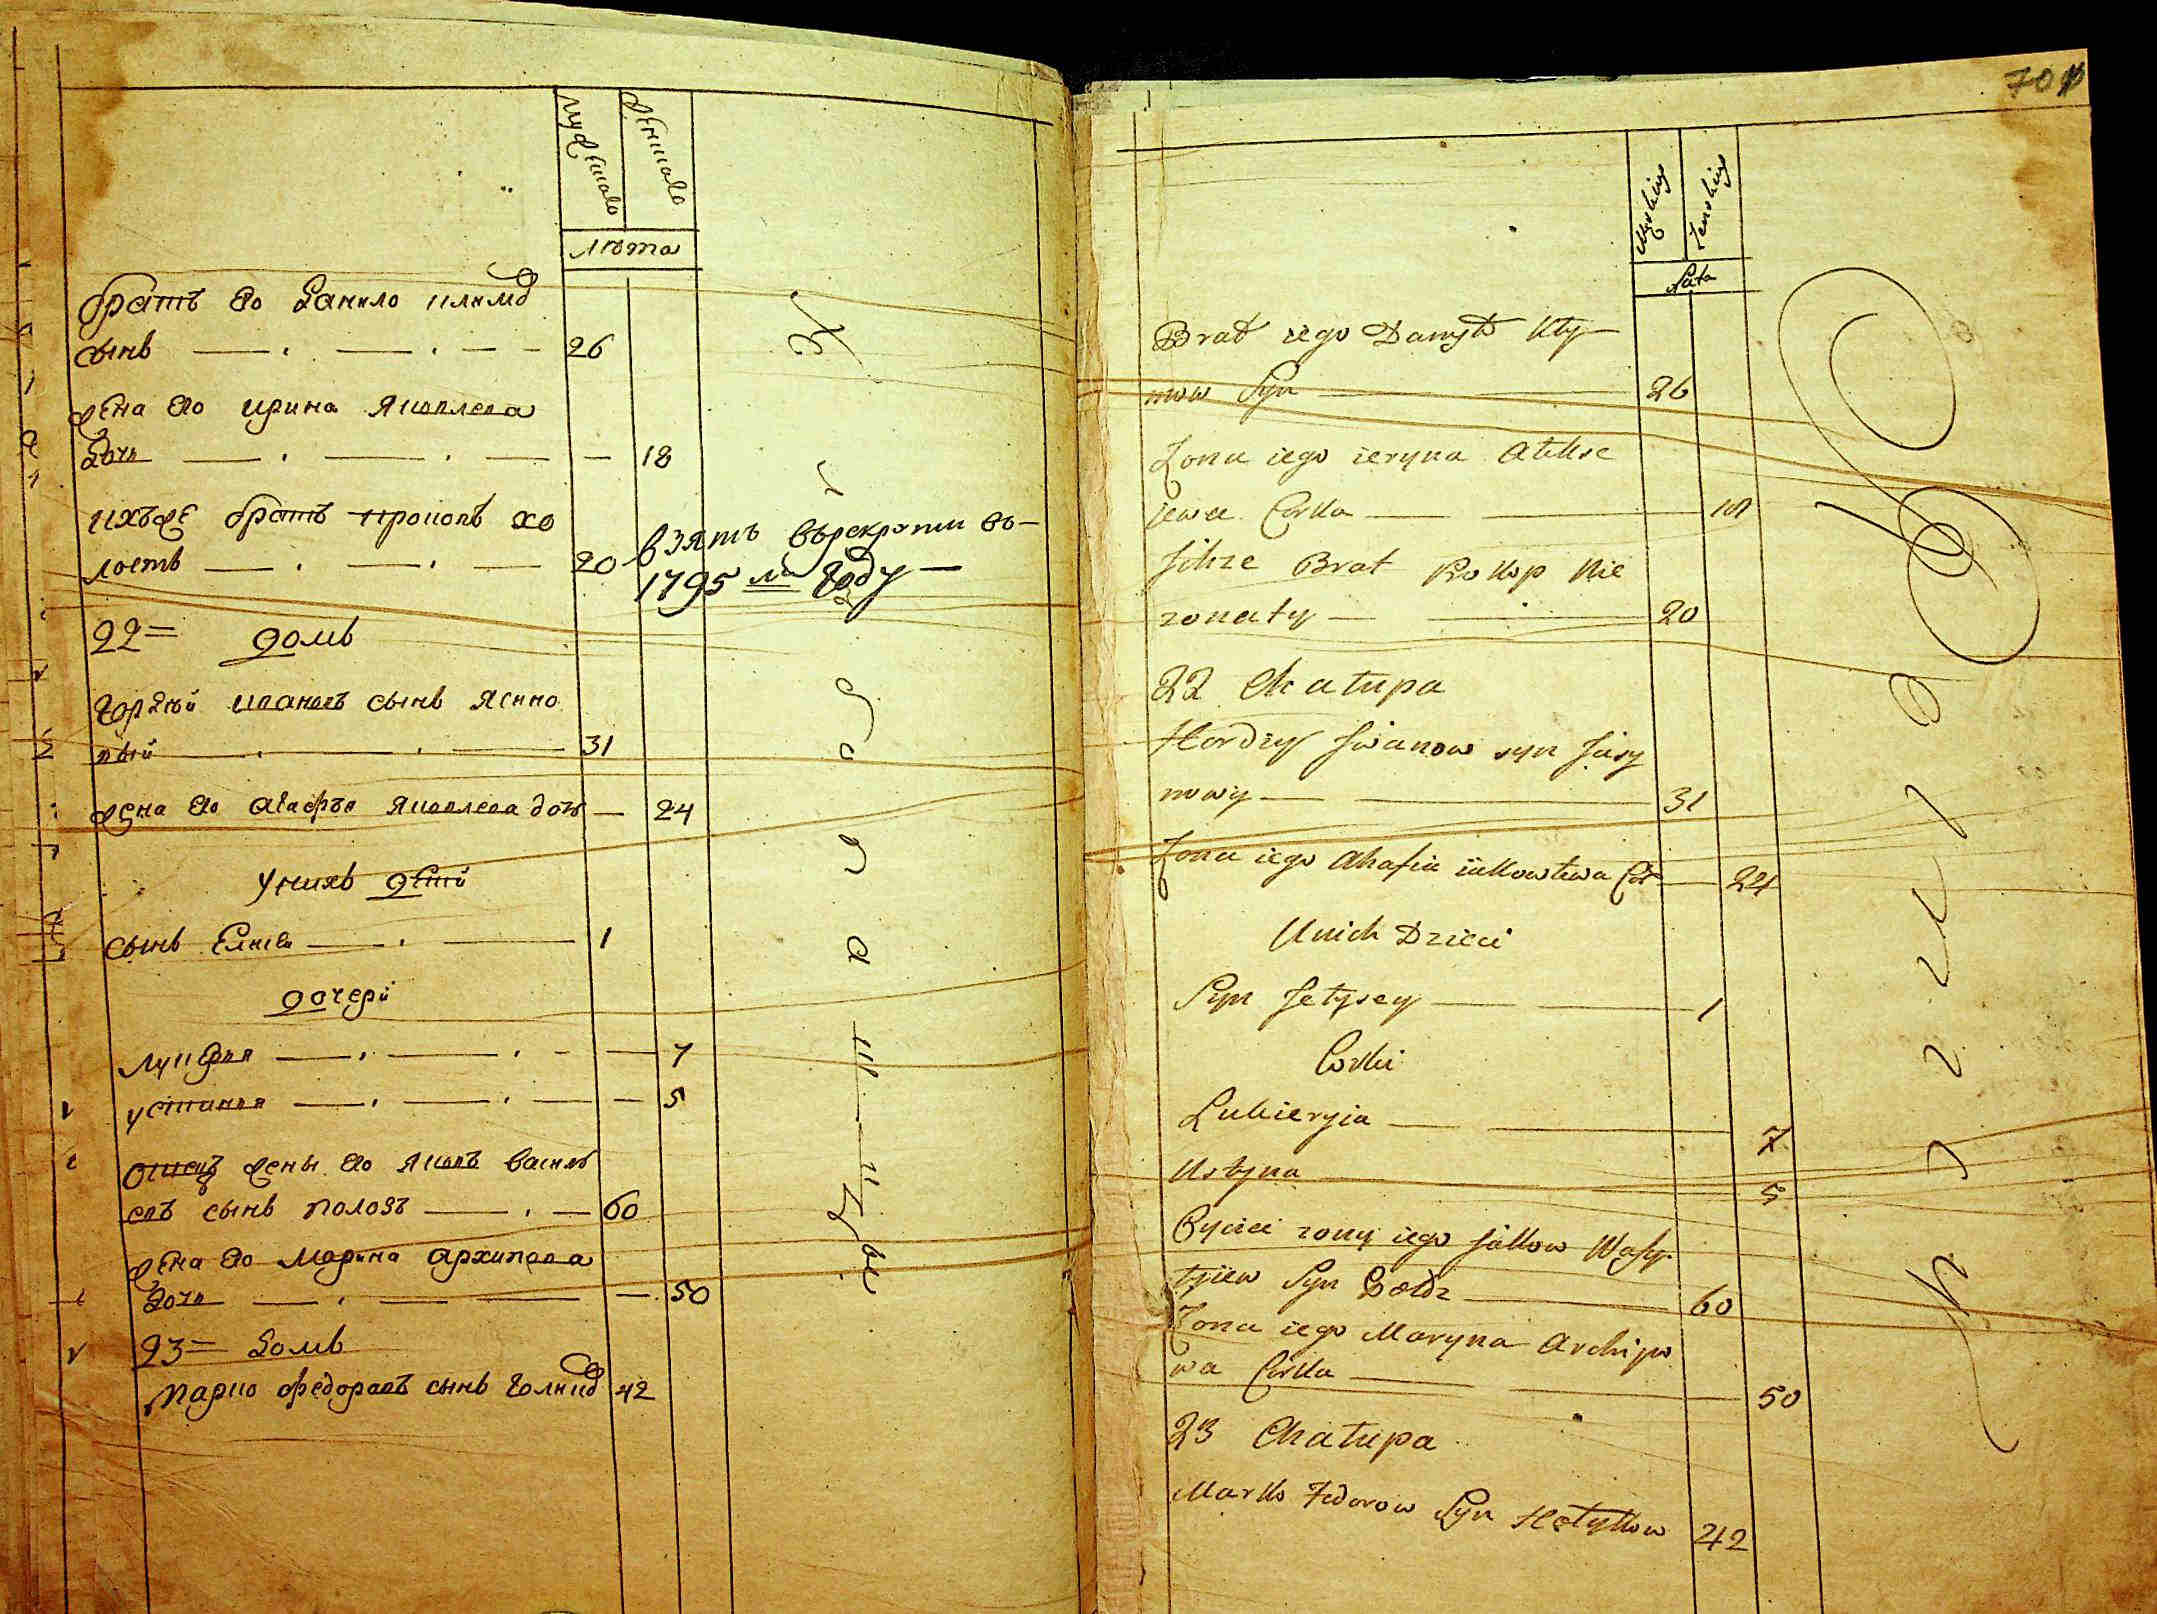 мужеска
женска
лѣта
братъ его Данило климов
сынъ 26
жена его ирина Яковлева
дочь 18
ихъже братъ прокопъ хо
лостъ 20
взятъ въ рекруты въ
1795 м году
22 = домъ
гордѣй ивановъ сынъ Ясино
вый 31
жена его агафья Яковлева дочь 24
у нихъ дети
сынъ Елисей 1
дочери
лукерья 7
устинья 5
отецъ жены его Яковъ василь
евъ сынъ полозъ 60
жена его марина архипова
дочь 50
23 = домъ
марко федоровъ сынъ голиков 42
70
Męskiego
Żenskiego
Lata
Brat iego Danyło Kły
mow Syn 26
Żona iego ieryna Alekse
iewa Corka 18
Jchże Brat Prokop Nie
zonaty 20
22 Chałupa
Hordiey Jwanow syn Jasy
nowy 31
Żona iego Ahafia iakowlewa Cor 24
U nich Dzieci
Syn Jełysey 1
Corki
Lukieryia 7
Ustyna 5
Oyciec żony iego Jakow Wasy
lyiew Syn 60
Żona iego Maryna Archipo
wa Corka 50
23 Chałupa
Marko Fedorow Syn Hołykow 42